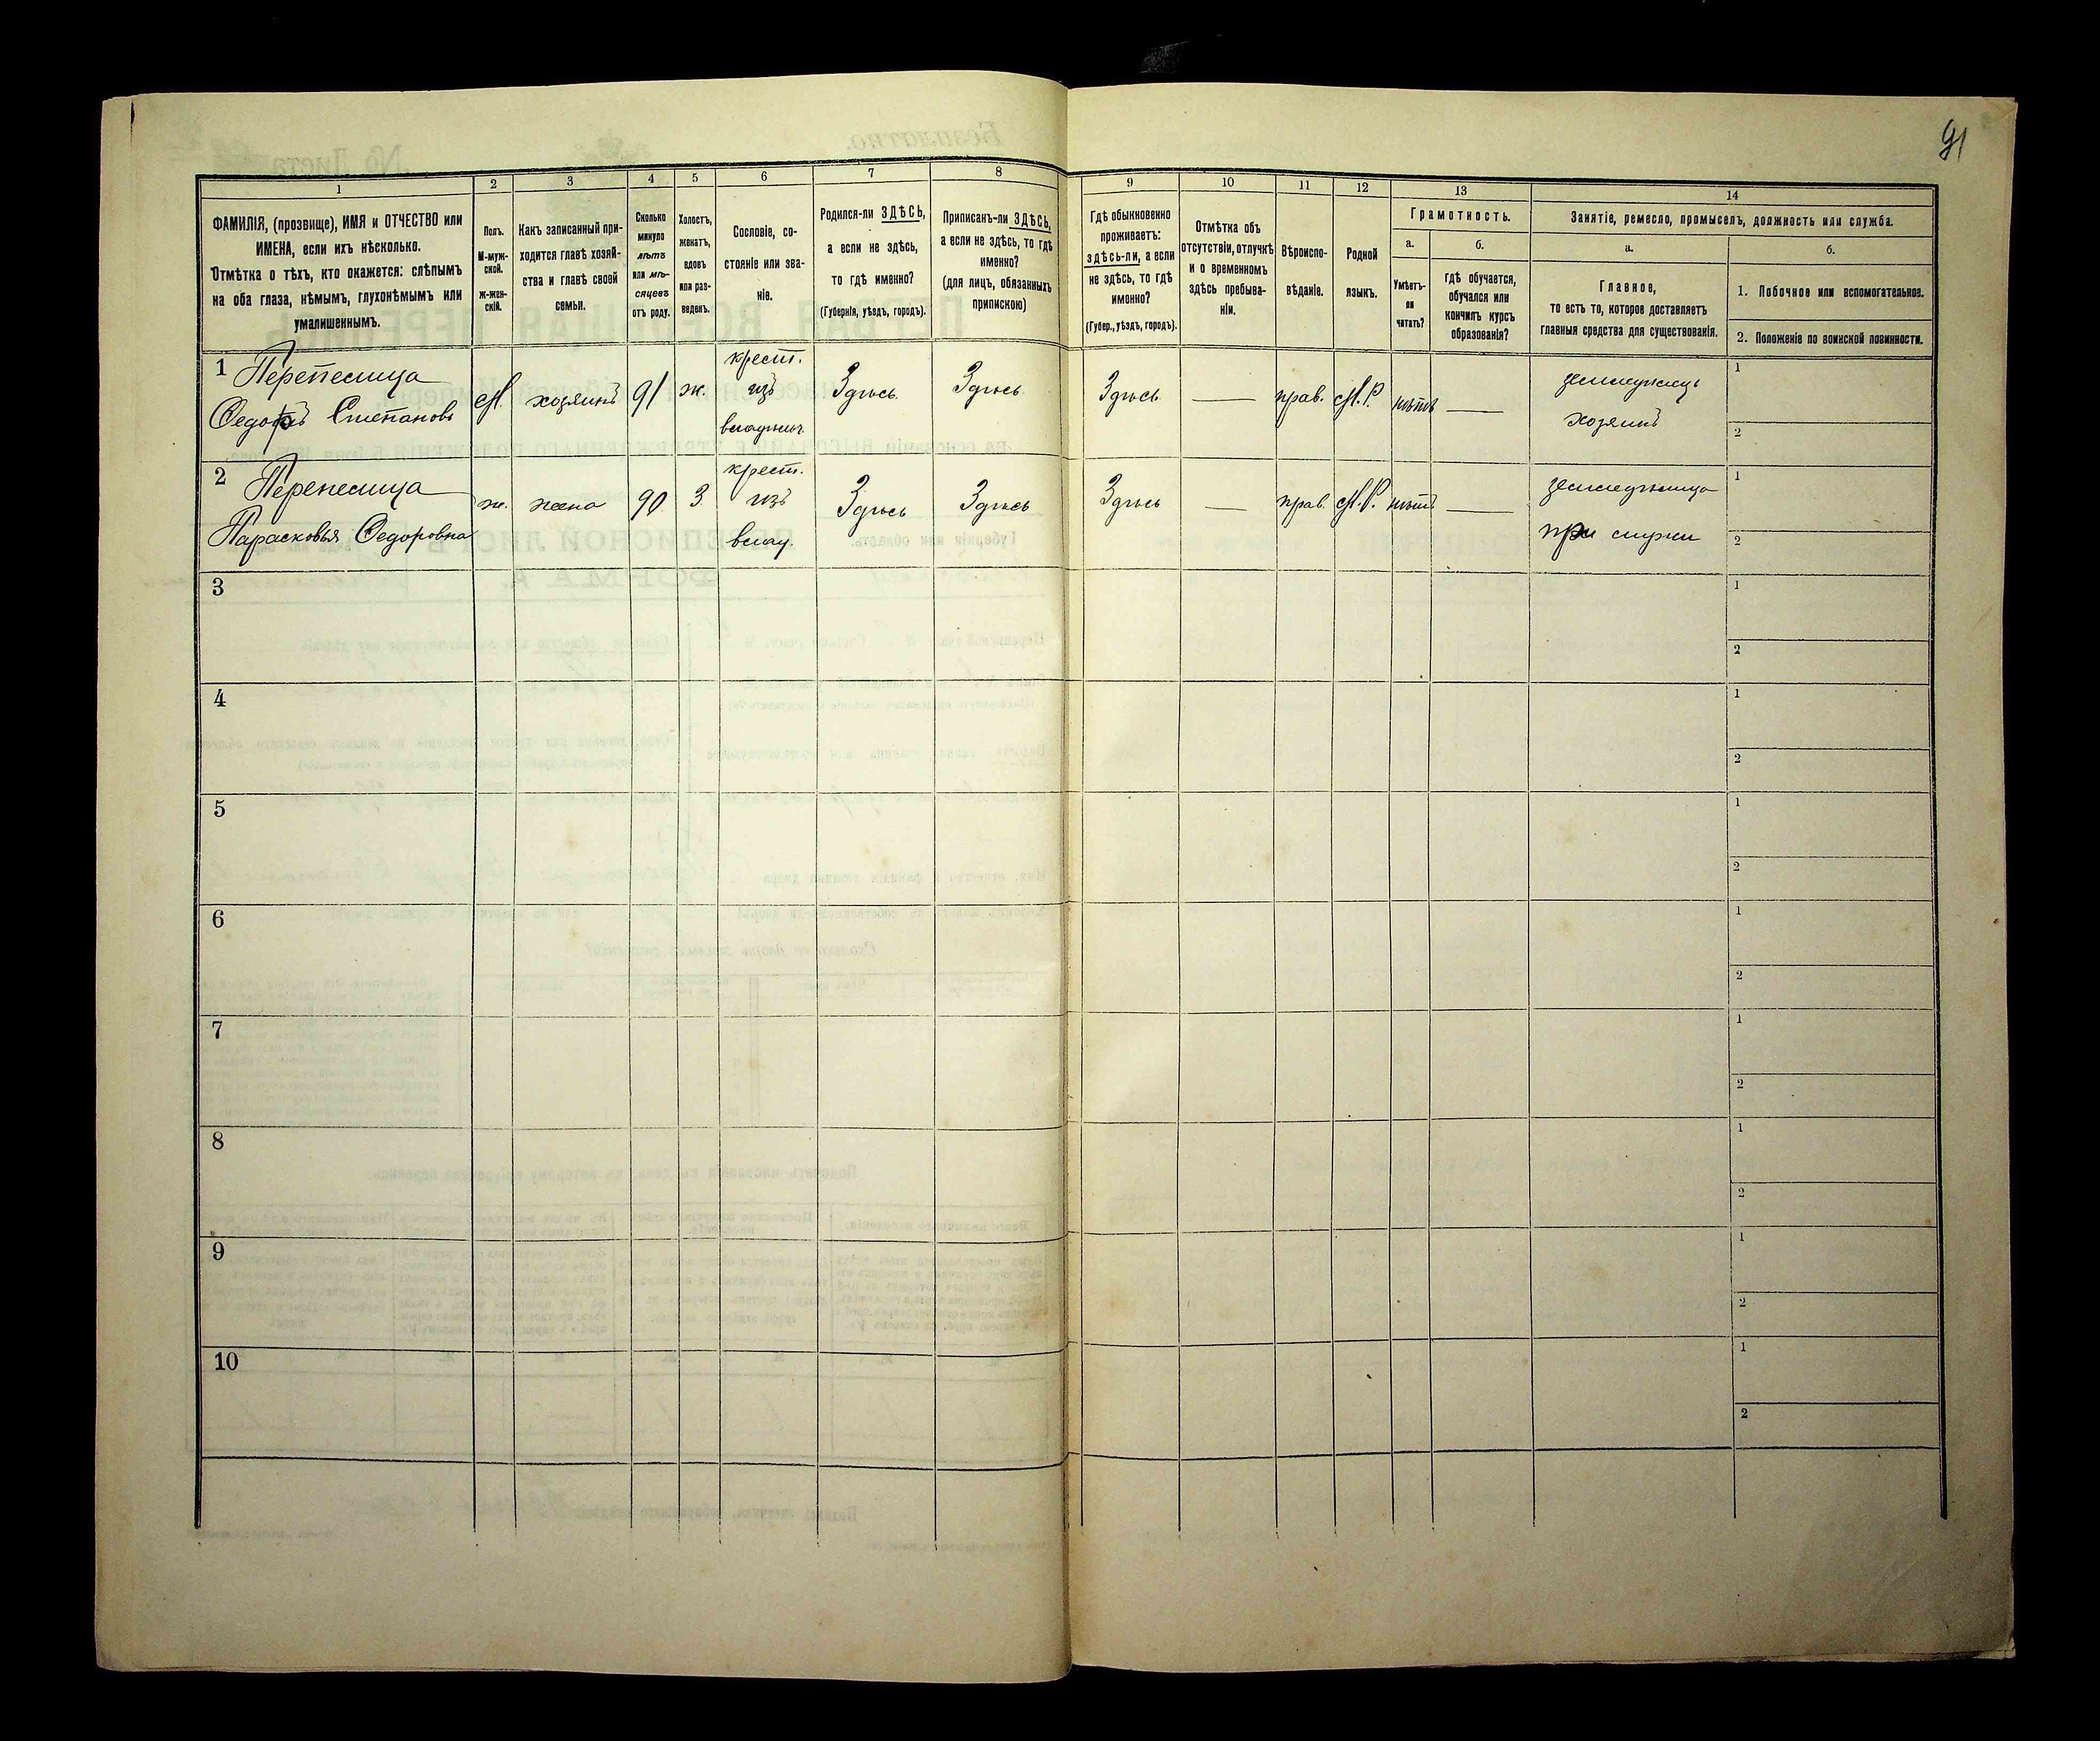 91
1 2 3 4 5 6 7 8 9 10 11 12 13 14
ФАМИЛІЯ, (прозвище), ИМЯ и ОТЧЕСТВО или
ИМЕНА, если ихъ нѣсколько.
Отмѣтка о тѣхъ, кто окажется: слѣпымъ
на оба глаза, нѣмымъ, глухонѣмымъ или
умалишеннымъ.
Полъ.
М-муж-
ской.
ж-жен-
скій.
Какъ записанный при-
ходится главѣ хозяй-
ства и главѣ своей
семьи.
Сколько
минуло
лѣтъ
или мѣ-
сяцевъ
отъ роду.
Холостъ,
женатъ,
вдовъ
или раз-
веденъ.
Сословіе, со-
стояніе или зва-
ніе.
Родился-ли ЗДѢСЬ,
а если не здѣсь,
то гдѣ именно?
(Губернія, уѣздъ, городъ).
Приписанъ-ли ЗДѢСЬ,
а если не здѣсь, то гдѣ
именно?
(для лицъ, обязанныхъ
припискою)
Гдѣ обыкновенно
проживаетъ:
здѣсь-ли, а если
не здѣсь, то гдѣ
именно?
(Губер., уѣздъ, городъ).
Отмѣтка объ
отсутствіи, отлучкѣ
и о временномъ
здѣсь пребыва-
ніи.
Вѣроиспо-
вѣданіе.
Родной
языкъ.
Грамотность.
а.
Умѣетъ-
ли
читать?
б.
гдѣ обучается,
обучался или
кончилъ курсъ
образованія?
Занятіе, ремесло, промыселъ, должность или служба.
а.
Главное,
то есть то, которое доставляетъ
главныя средства для существованія.
б.
1. Побочное или вспомогательное.
2. Положеніе по воинской повинности.
1 Перепелица
Федоръ Степановъ
М. хозяинъ 91 ж.
крест.
изъ
Здѣсь. Здѣсь. Здѣсь. — прав. М.Р. нѣтъ —
земледѣлецъ
хозяинъ
1
2
2 Перепелица
Парасковья Федоровна
ж. жена 90 З.
крест.
изъ
влад.
Здѣсь Здѣсь Здѣсь — прав. М.Р. нѣтъ —
при мужи
1
2
3
1
2
4
1
2
5
1
2
6
1
2
7
1
2
8
1
2
9
1
2
10
1
2